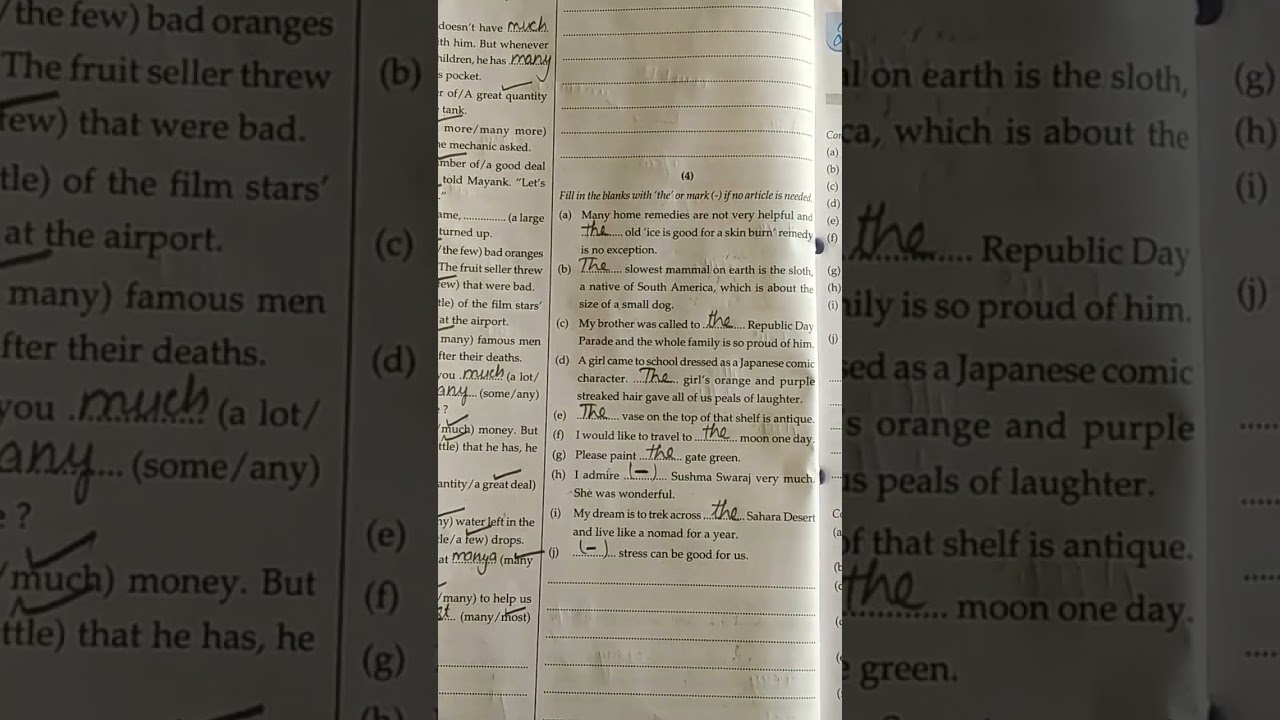 doesn't have much
th him. But whenever
hildren, he has many
s pocket.
r of/A great quantity
tank.
more/many more)
e mechanic asked.
mber of/a good deal
told Mayank. "Let's
."
ame, .............. (a large
turned up.
/the few) bad oranges
The fruit seller threw
few) that were bad.
tle) of the film stars'
at the airport.
many) famous men
fter their deaths.
you .much (a lot/
any... (some/any)
?
/much) money. But
ttle) that he has, he
antity/a great deal)
ny) water left in the
le/a few) drops.
at many a (many
/many) to help us
st.... (many/most)
(4)
Fill in the blanks with 'the' or mark (-) if no article is needed.
(a) Many home remedies are not very helpful and
the old 'ice is good for a skin burn' remedy
is no exception.
(b) The slowest mammal on earth is the sloth,
a native of South America, which is about the
size of a small dog.
(c) My brother was called to the Republic Day
Parade and the whole family is so proud of him.
(d) A girl came to school dressed as a Japanese comic
character. The girl's orange and purple
streaked hair gave all of us peals of laughter.
(e) The vase on the top of that shelf is antique.
(f) I would like to travel to the moon one day.
(g) Please paint the gate green.
(h) I admire (-) Sushma Swaraj very much.
She was wonderful.
(i) My dream is to trek across the Sahara Desert
and live like a nomad for a year.
(j) (-) stress can be good for us.
Con
(a)
(b)
(c)
(d)
(e)
(f)
(g)
(h)
(i)
(j)